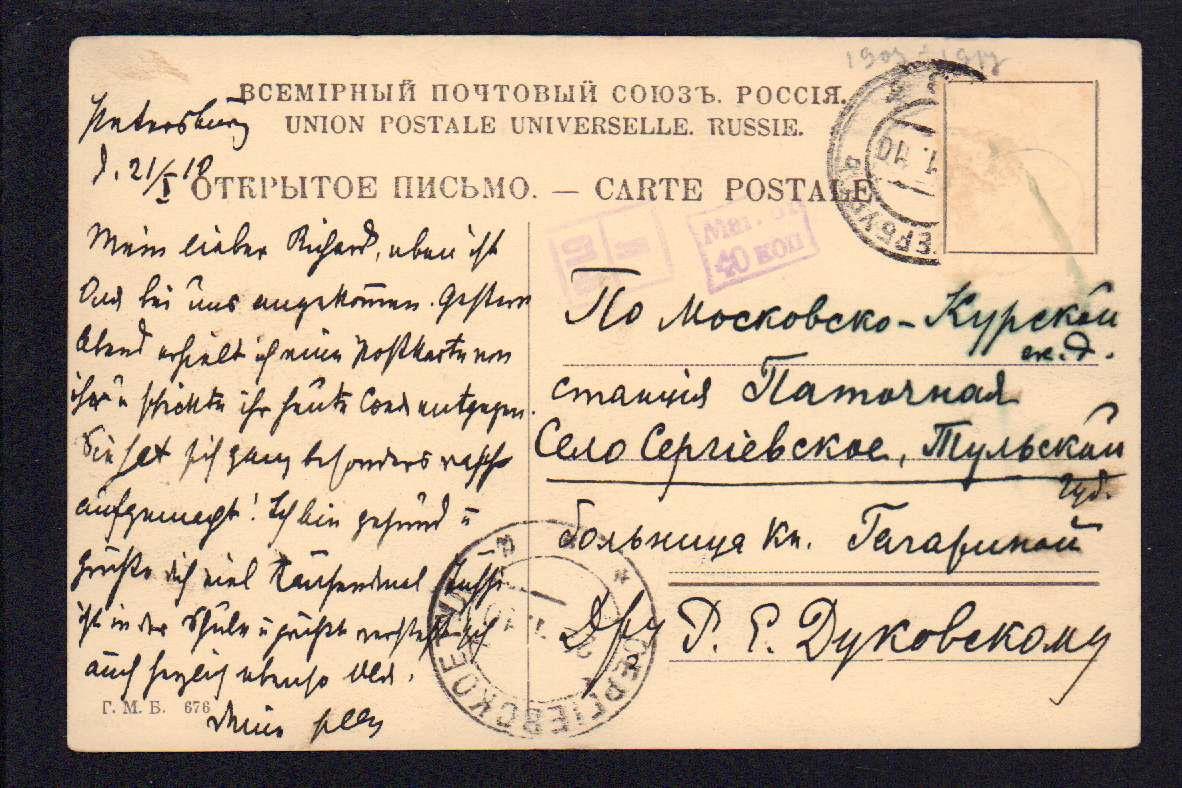 1907-1917
ВСЕМІРНЫЙ ПОЧТОВЫЙ СОЮЗЪ. РОССІЯ.
UNION POSTALE UNIVERSELLE. RUSSIE.
ОТКРЫТОЕ ПИСЬМО. — CARTE POSTALE.
Petersburg
d. 21/I 10
Mein lieber Richard, eben ist
bei uns angekommen. Gestern
Abend erhielt ich eine Postkarte von
ihr u schickte ihr heute entgegen.
Sie hat sich ganz besonders rasch
aufgemacht! Ich bin gesund u
grüße dich viel Tausendmal
ist in der Schule u grüßt
auch herzlich ebenso
Deine
Г. М. Б. 676
Маг.
40 коп
По Московско-Курской
ж.д.
станція Паточная
Село Сергіевское, Тульской
губ.
больница Кн. Гагариной
Дру Р. Е. Дуковскому
СЕРГІЕВСКОЕ